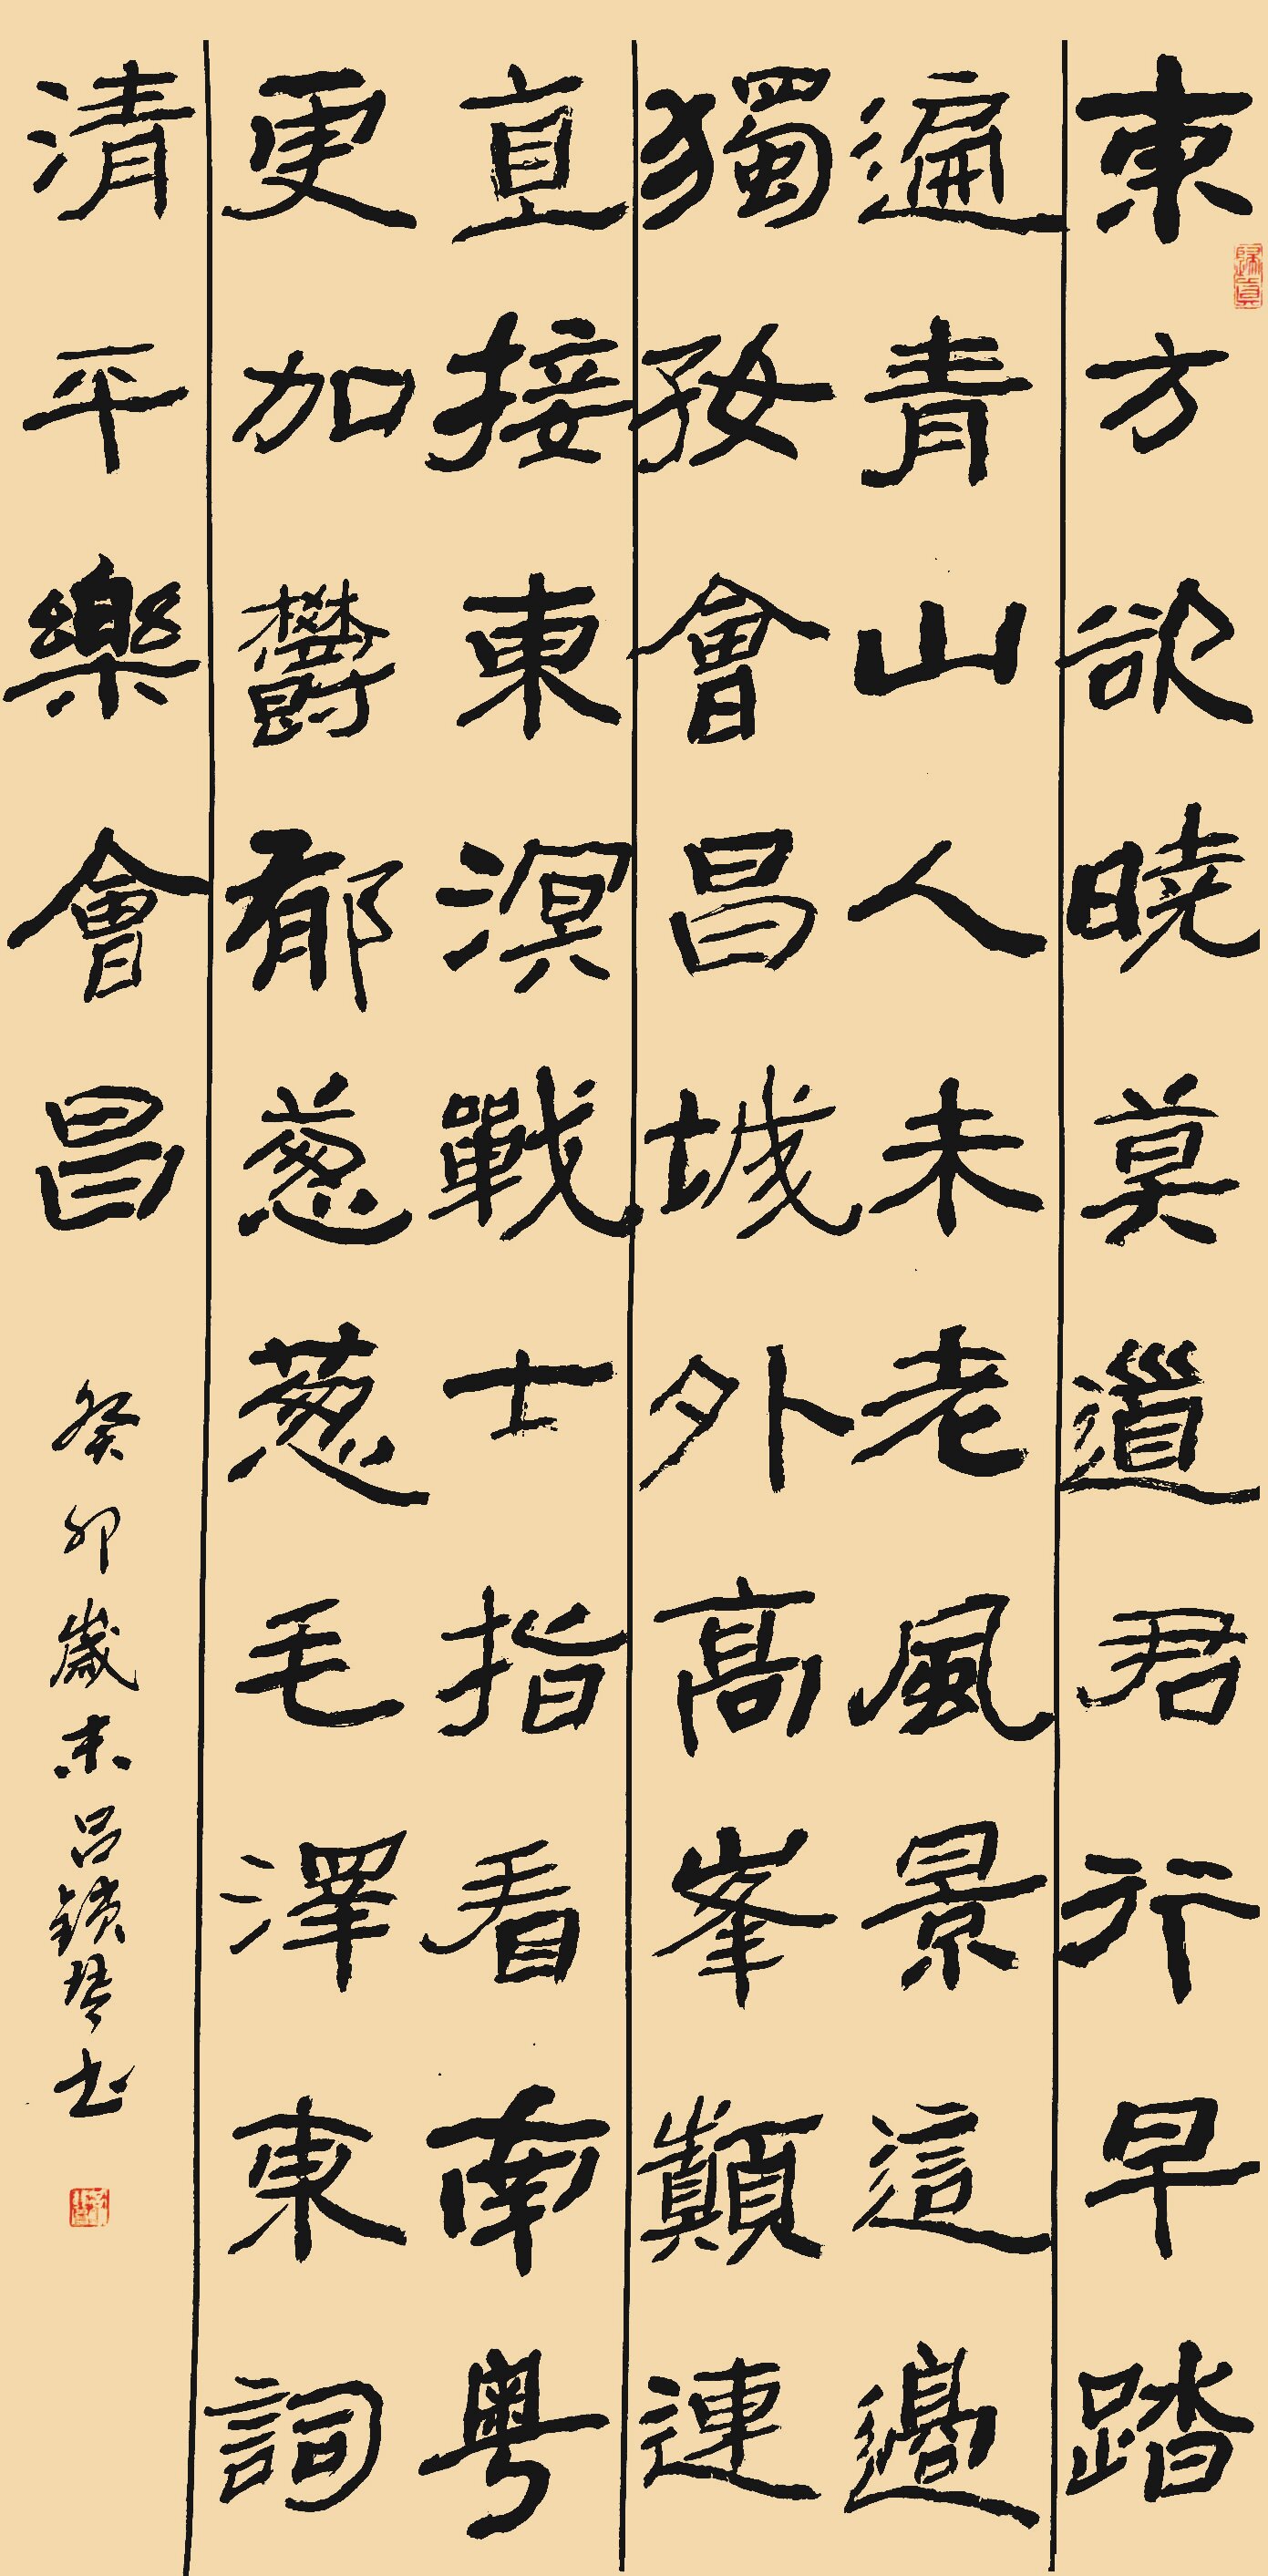 東方欲曉莫道君行早踏
遍青山人未老風景這邊
獨好會昌城外高峯顛連
直接東溟戰士指看南粵
更加鬱郁蔥蔥毛澤東詞
清平樂會昌
癸卯歲末呂鎖琴書
歸真